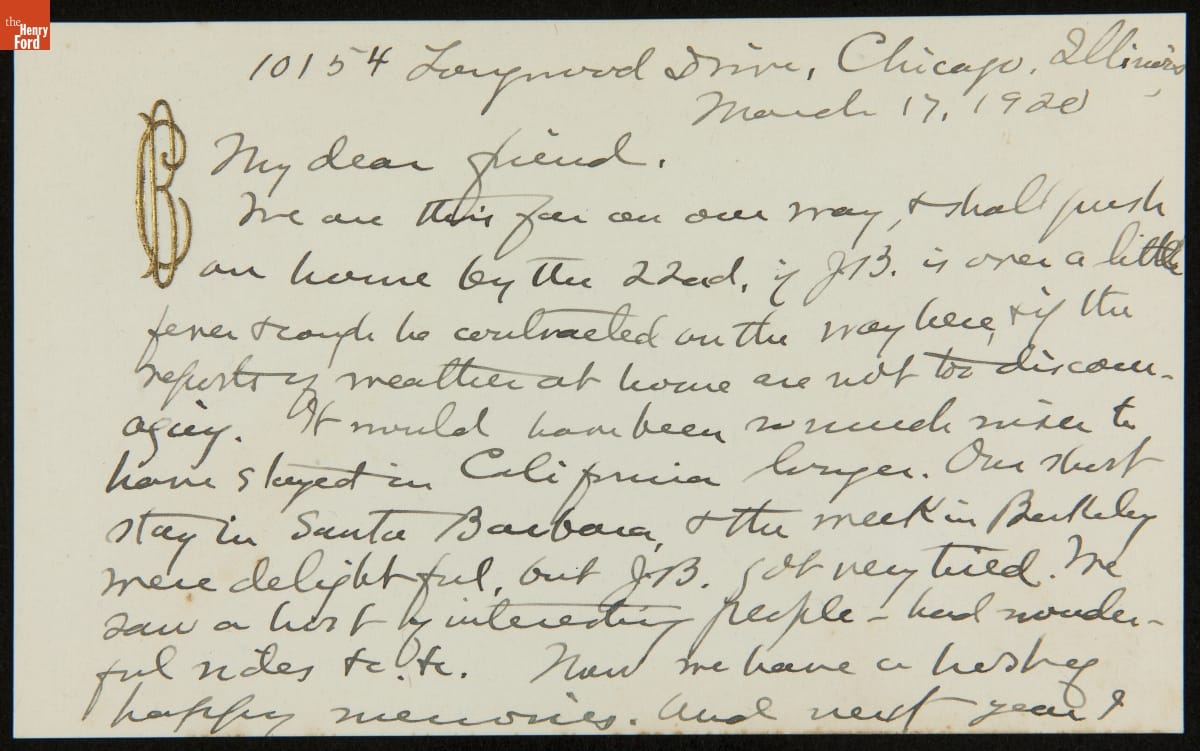 the
Henry
Ford
10154 Longwood Drive, Chicago, Illinois,
March 17, 1920
CB
My dear friend.
We are this far on our way, & shall push
on home by the 22nd, if J.B. is over a little
fever & cough he contracted on the way here, & if the
reports of weather at home are not too discour-
aging. It would have been so much wiser to
have stayed in California longer. Our short
stay in Santa Barbara, & the week in Berkeley
were delightful, but J.B. got very tired. We
saw a host of interesting people - had wonder-
ful rides &c. &c. Now we have a host of
happy memories. And next year I